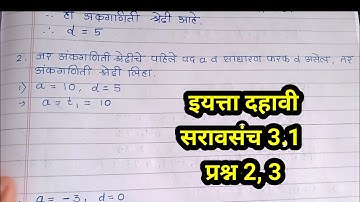 ∴ ही अंकगणिती श्रेढी आहे.
∴ d = 5
2. जर अंकगणिती श्रेढीचे पहिले पद a व साधारण फरक d असेल, तर
अंकगणिती श्रेढी लिहा.
i) a = 10, d = 5
→ a = t₁ = 10
a = -3, d = 0
इयत्ता दहावी
सरावसंच 3.1
प्रश्न 2, 3